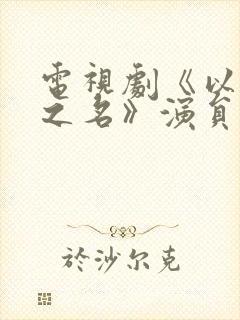 電視劇《以
之名》演員
於沙尔克